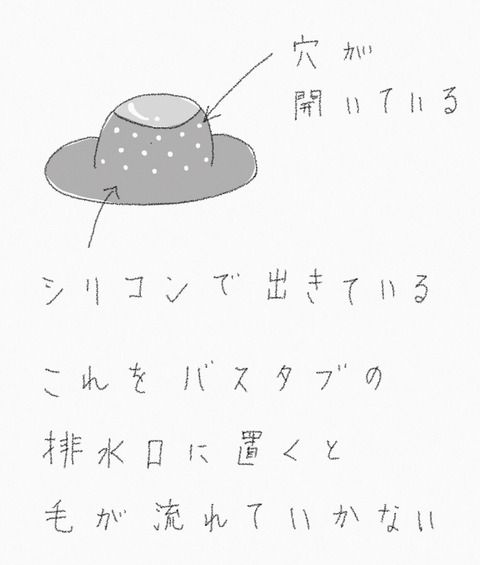 穴が
開いている
シリコンで出きている
これをバスタブの
排水口に置くと
毛が流れていかない